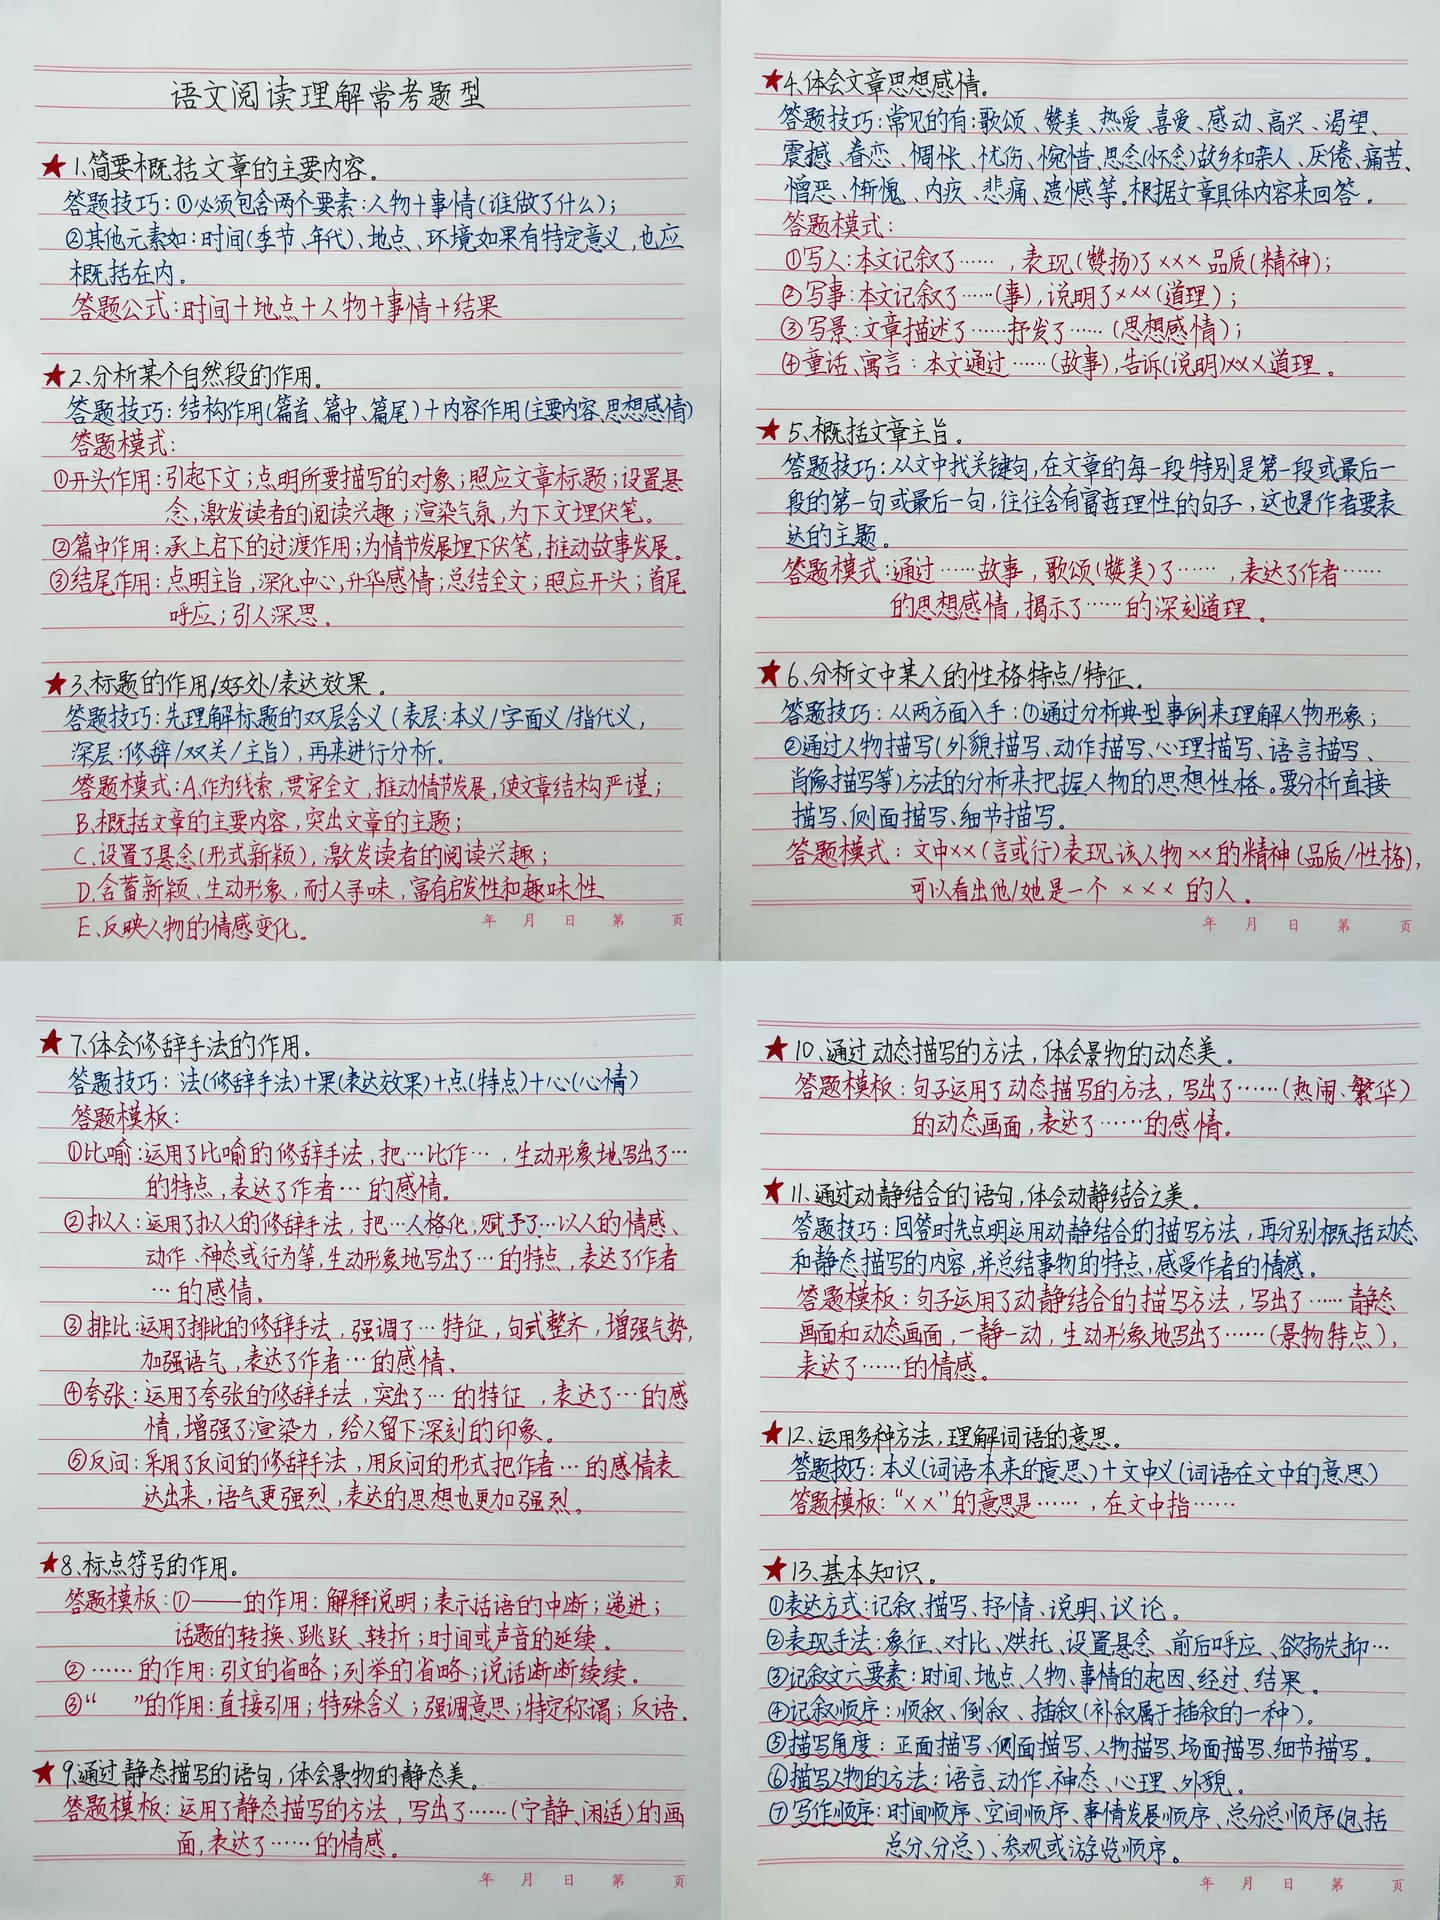 语文阅读理解常考题型
★1.简要概括文章的主要内容。
答题技巧:①必须包含两个要素:人物+事情(谁做了什么);
②其他元素如:时间(季节、年代)、地点、环境如果有特定意义,也应
概括在内。
答题公式:时间+地点+人物+事情+结果
★2、分析某个自然段的作用。
答题技巧:结构作用(篇首、篇中、篇尾)+内容作用(主要内容、思想感情)
答题模式:
①开头作用:引起下文;点明所要描写的对象;照应文章标题;设置悬
念,激发读者的阅读兴趣;渲染气氛,为下文埋伏笔。
②篇中作用:承上启下的过渡作用;为情节发展埋下伏笔,推动故事发展。
③结尾作用:点明主旨,深化中心,升华感情;总结全文;照应开头;首尾
呼应;引人深思。
★3、标题的作用/好处/表达效果。
答题技巧:先理解标题的双层含义(表层:本义/字面义/指代义,
深层:修辞/双关/主旨),再来进行分析。
答题模式:A.作为线索,贯穿全文,推动情节发展,使文章结构严谨;
B.概括文章的主要内容,突出文章的主题;
C.设置了悬念(形式新颖),激发读者的阅读兴趣;
D.含蓄新颖、生动形象,耐人寻味,富有启发性和趣味性
E、反映人物的情感变化。
年 月 日 第 页
★4.体会文章思想感情。
答题技巧:常见的有:歌颂、赞美、热爱、喜爱、感动、高兴、渴望、
震撼、眷恋、惆怅、忧伤、惋惜、思念(怀念)故乡和亲人、厌倦、痛苦、
憎恶、惭愧、内疚、悲痛、遗憾等。根据文章具体内容来回答。
答题模式:
①写人:本文记叙了……,表现(赞扬)了×××品质(精神);
②写事:本文记叙了……(事),说明了×××(道理);
③写景:文章描述了……抒发了……(思想感情);
④童话、寓言:本文通过……(故事),告诉(说明)×××道理。
★5、概括文章主旨。
答题技巧:从文中找关键句,在文章的每一段特别是第一段或最后一
段的第一句或最后一句,往往含有富哲理性的句子,这也是作者要表
达的主题。
答题模式:通过……故事,歌颂(赞美)了……,表达了作者……
的思想感情,揭示了……的深刻道理。
★6、分析文中某人的性格特点/特征。
答题技巧:从两方面入手:①通过分析典型事例来理解人物形象;
②通过人物描写(外貌描写、动作描写、心理描写、语言描写、
肖像描写等)方法的分析来把握人物的思想性格。要分析直接
描写、侧面描写、细节描写。
答题模式:文中××(言或行)表现该人物××的精神(品质/性格),
可以看出他/她是一个×××的人。
年 月 日 第 页
★7.体会修辞手法的作用。
答题技巧:法(修辞手法)+果(表达效果)+点(特点)+心(心情)
答题模板:
①比喻:运用了比喻的修辞手法,把…比作…,生动形象地写出了…
的特点,表达了作者…的感情。
②拟人:运用了拟人的修辞手法,把…人格化,赋予了…以人的情感、
动作、神态或行为等,生动形象地写出了…的特点,表达了作者
…的感情。
③排比:运用了排比的修辞手法,强调了…特征,句式整齐,增强气势,
加强语气,表达了作者…的感情。
④夸张:运用了夸张的修辞手法,突出了…的特征,表达了…的感
情,增强了渲染力,给人留下深刻的印象。
⑤反问:采用了反问的修辞手法,用反问的形式把作者…的感情表
达出来,语气更强烈,表达的思想也更加强烈。
★8、标点符号的作用。
答题模板:①——的作用:解释说明;表示话语的中断;递进;
话题的转换、跳跃、转折;时间或声音的延续。
②……的作用:引文的省略;列举的省略;说话断断续续。
③“ ”的作用:直接引用;特殊含义;强调意思;特定称谓;反语。
★9.通过静态描写的语句,体会景物的静态美。
答题模板:运用了静态描写的方法,写出了……(宁静、闲适)的画
面,表达了……的情感。
年 月 日 第 页
★10、通过动态描写的方法,体会景物的动态美。
答题模板:句子运用了动态描写的方法,写出了……(热闹、繁华)
的动态画面,表达了……的感情。
★11、通过动静结合的语句,体会动静结合之美。
答题技巧:回答时先点明运用动静结合的描写方法,再分别概括动态
和静态描写的内容,并总结事物的特点,感受作者的情感。
答题模板:句子运用了动静结合的描写方法,写出了……静态
画面和动态画面,一静一动,生动形象地写出了……(景物特点),
表达了……的情感。
★12、运用多种方法,理解词语的意思。
答题技巧:本义(词语本来的意思)+文中义(词语在文中的意思)
答题模板:“××”的意思是……,在文中指……
★13、基本知识。
①表达方式:记叙、描写、抒情、说明、议论。
②表现手法:象征、对比、烘托、设置悬念、前后呼应、欲扬先抑…
③记叙文六要素:时间、地点、人物、事情的起因、经过、结果。
④记叙顺序:顺叙、倒叙、插叙(补叙属于插叙的一种)。
⑤描写角度:正面描写、侧面描写、人物描写、场面描写、细节描写。
⑥描写人物的方法:语言、动作、神态、心理、外貌。
⑦写作顺序:时间顺序、空间顺序、事情发展顺序、总分总顺序(包括
总分、分总)、参观或游览顺序。
年 月 日 第 页